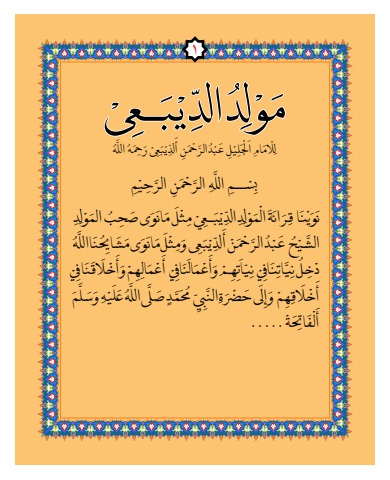 ١
مَوْلِدُ الدِّيْبَعِىْ
لِلْاِمَامِ الْجَلِيْلِ عَبْدُ الرَّحْمٰنِ الدِّيْبَعِىْ رَحِمَهُ اللّٰهُ
بِسْـــمِ اللّٰهِ الرَّحْمٰنِ الرَّحِيْمِ
نَوَيْنَا قِرَائَةَ الْمَوْلِدِ الدِّيْبَعِيْ مِثْلَ مَانَوَى صَحِبُ الْمَوْلِدِ
الشَّيْخَ عَبْدُ الرَّحْمَنْ أَلدِّيْبَعِى وَمِثْلَ مَانَوَى مَشَايِخُنَا اللّٰهُ
دْخِلُ نِيَّاتِنَافِيْ نِيَاتِهِمْ وَأَعْمَالَنَافِي أَعْمَالِهِمْ وَأَخْلَاقَنَافِي
أَخْلَاقِهِمْ وَإِلَى حَضْرَةِ النَّبِيّ مُحَمَّدٍ صَلَّى اللّٰهُ عَلَيْهِ وَسَلَّمَ
أَلْفَاتِحَةْ .....